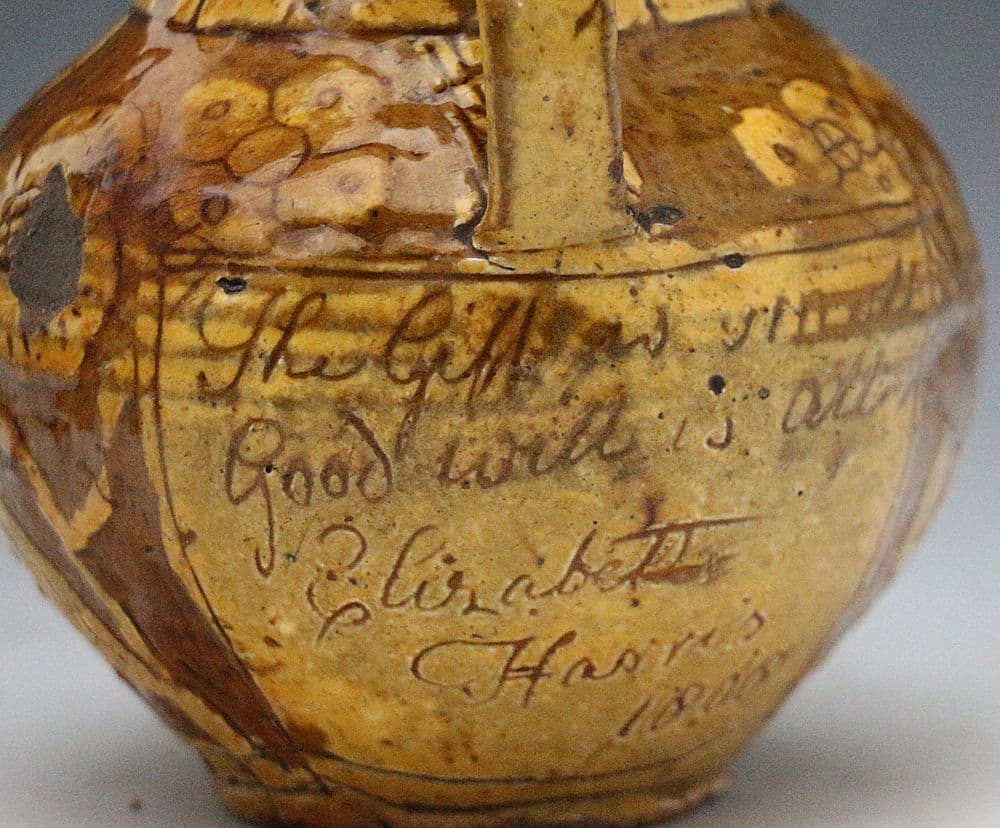 The Gift is small
Good will is all
Elizabeth
Harris